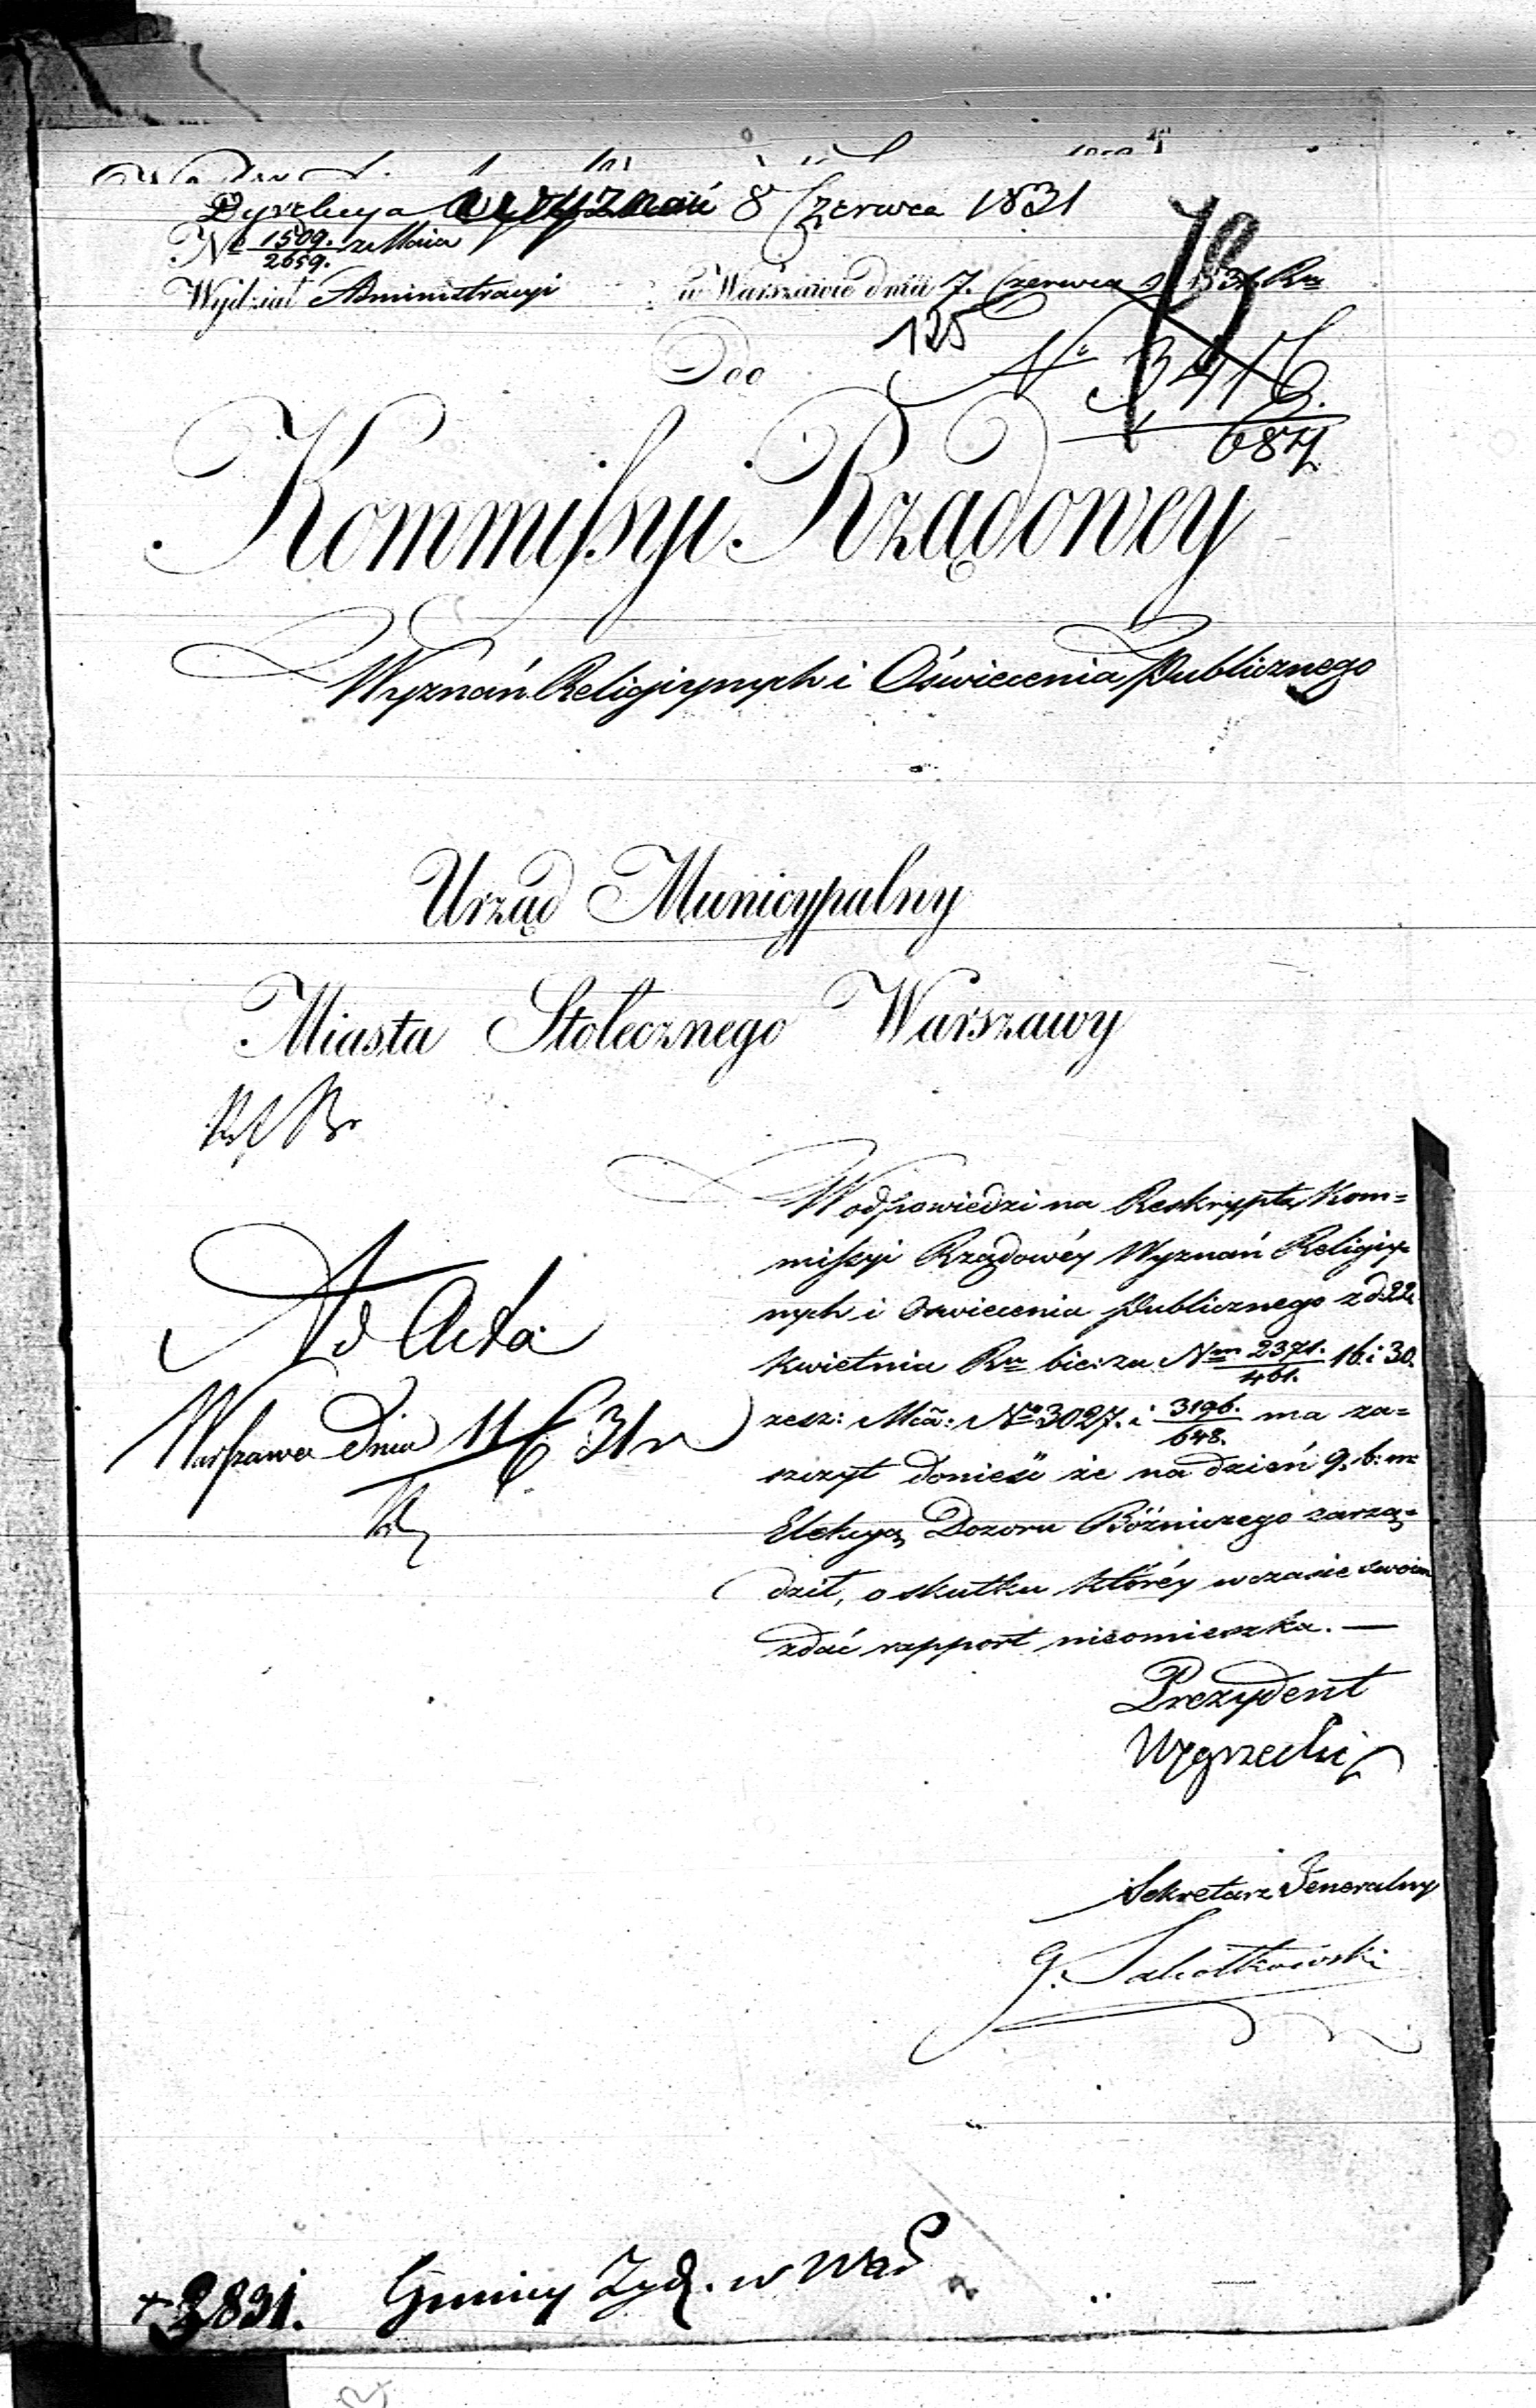 Dyrekcya Wyznań 8 Czerwca 1831
No 1509./2659. z Maia
Wydział Administracyi w Warszawie dnia 7. Czerwca 1831 Ru
18
125
Do No 3416./687
Kommissyi Rządowey
Wyznań Religiynych i Oświecenia Publicznego
Urząd Municypalny
Miasta Stołecznego Warszawy
W odpowiedzi na Reskrypta Kom=
missyi Rządowéy Wyznań Religiy=
nych i Oswiecenia Publicznego z d. 22
Kwietnia Ru bież: za Nm 2371./461. 16. i 30.
zesz: Mca: No 3027. i 3196./648. ma za=
szczyt donieść że na dzień 9. b: m:
Elekcyą Dozoru Bóżniczego zarzą=
dził, o skutku któréy w czasie swoim
zdać rapport nieomieszka. —
Ad Acta
Warszawa Dnia 11/6 31 r
Prezydent
Węgrzecki
Sekretarz Jeneralny
G. Sakołkowski
1831. Gminy Żyd. w Wars